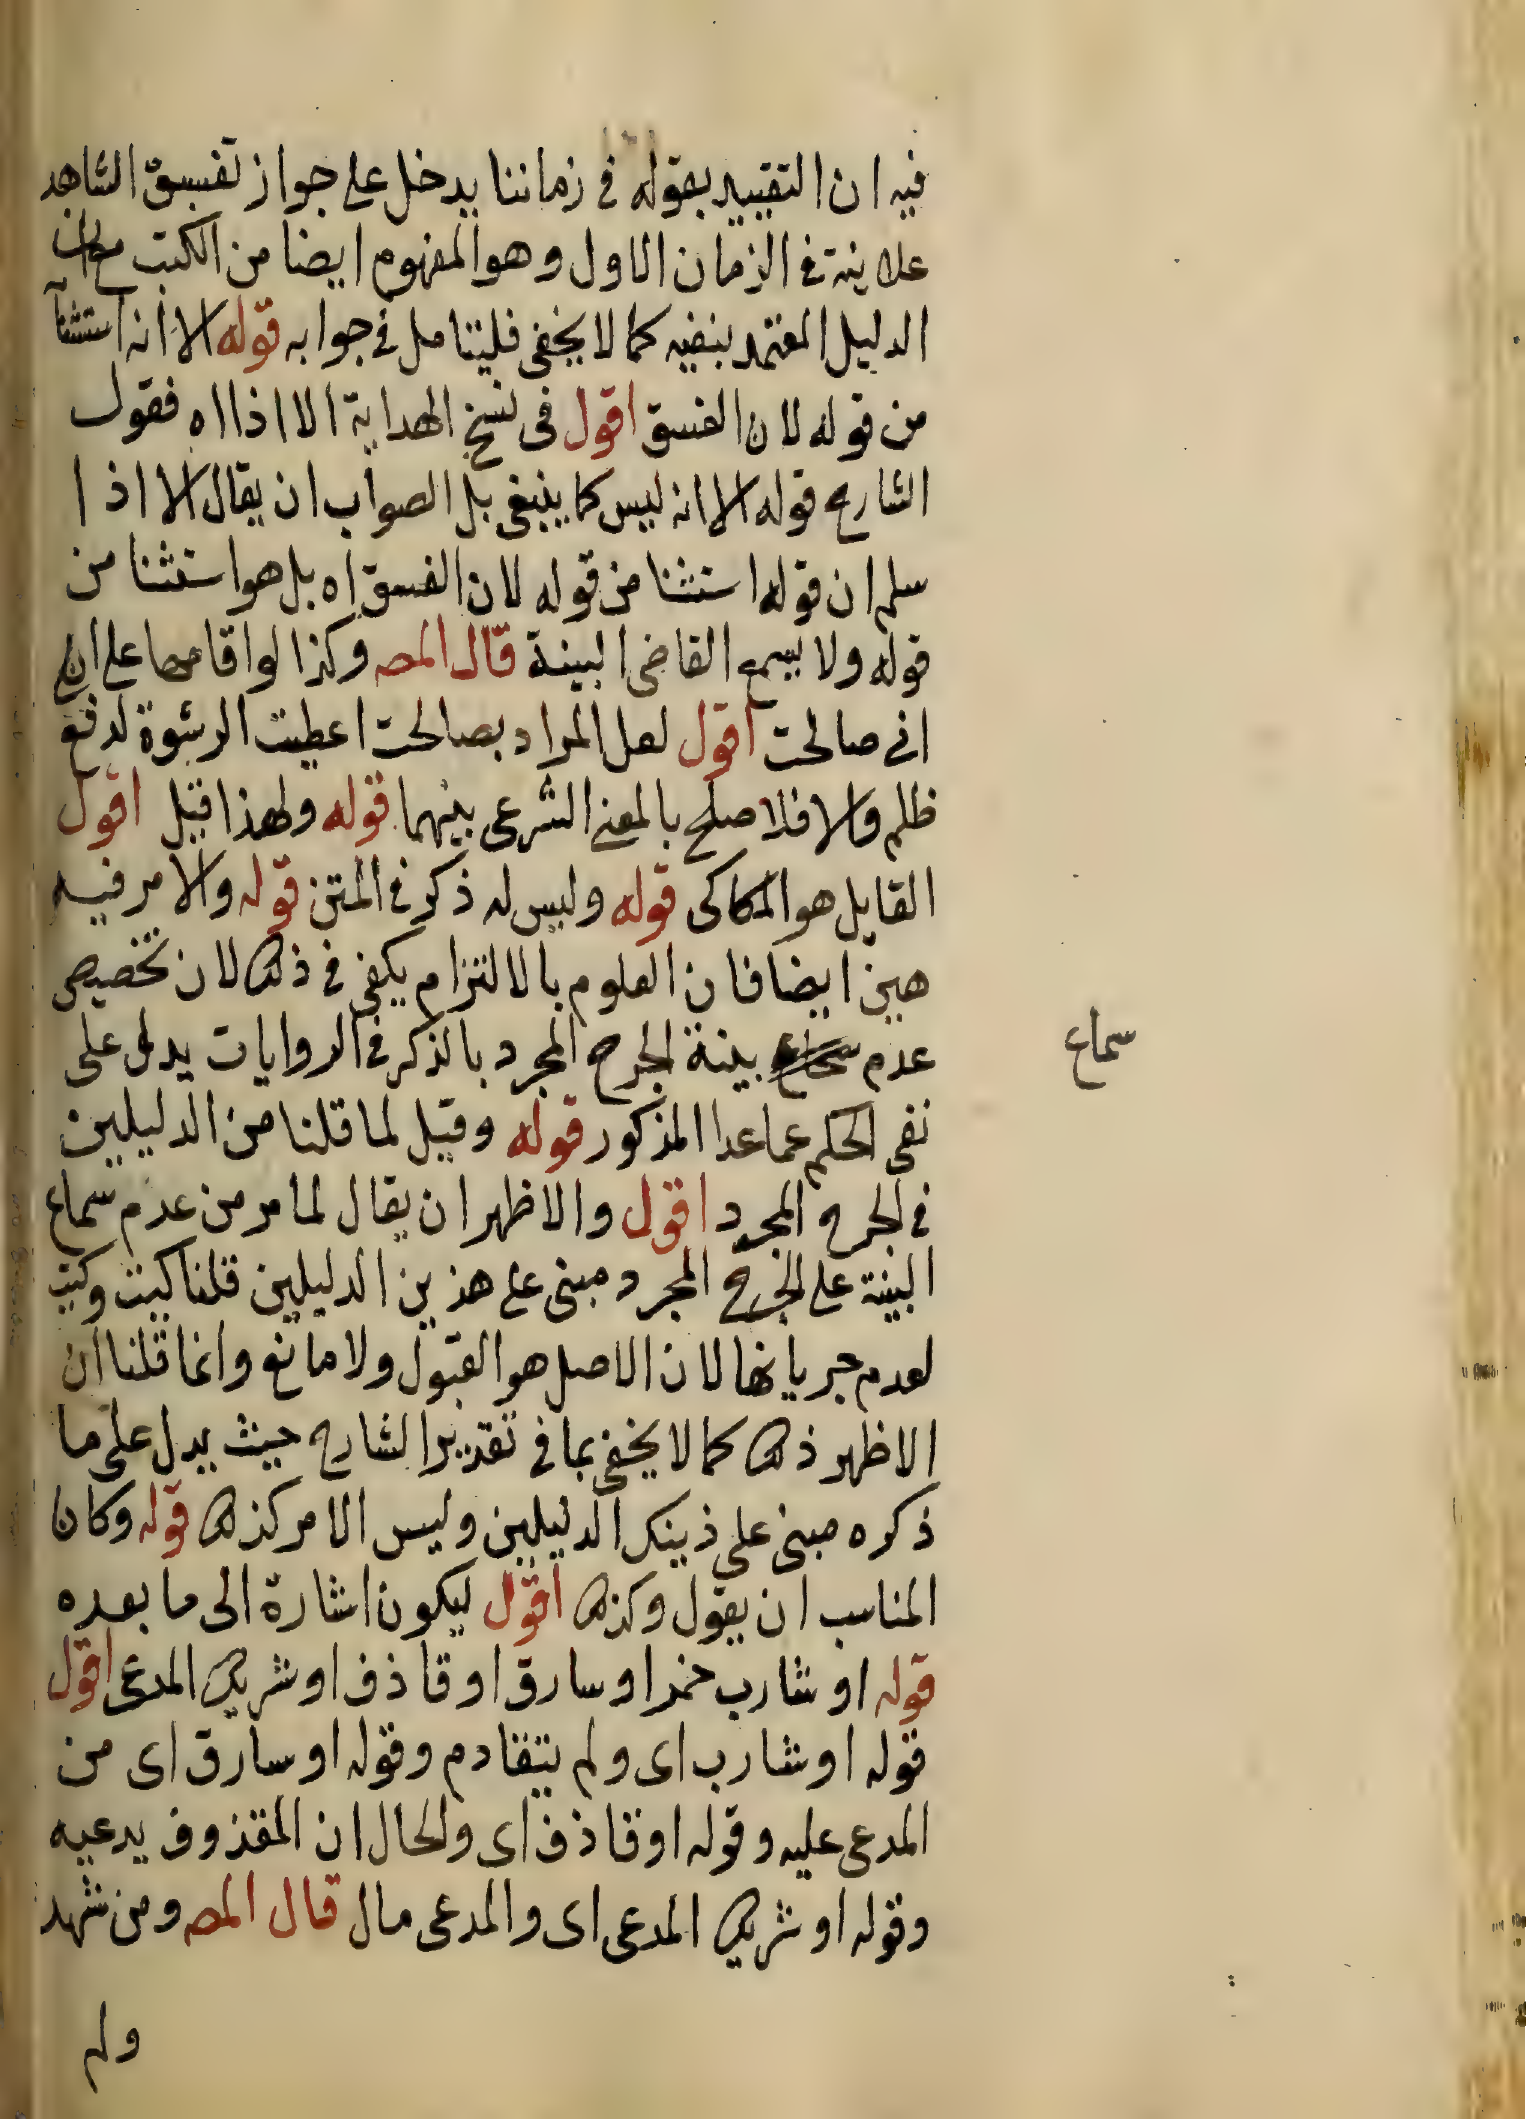 فيه ان التقييد بقوله في زماننا يدخل على جواز تفسيق الشاهد
علانية في الزمان الاول وهو المفهوم ايضا من الكتب مع ان
الدليل المعتمد ينفيه كما لا يخفى فليتامل في جوابه قوله الا انه استثنآ
من قوله لان الفسق اقول في نسخ الهداية الا اذا اه فقول
الشارح قوله الا انه ليس كما ينبغي بل الصواب ان يقال الا اذا
سلم ان قوله استثنا من قوله لان الفسق اه بل هو استثنا من
قوله ولا يسمع القاضي البينة قال المصـ وكذا لو اقامها على ان
اني صالحت اقول لعل المراد بصالحت اعطيت الرشوة لدفع
ظلم والا فلا صلح بالمعنى الشرعي بينهما قوله ولهذا قيل اقول
القايل هو الكاكي قوله وليس له ذكر في المتن قوله والامر فيه
هين ايضا فان العلوم بالالتزام يكفي في ذلك لان تخصيص
عدم سماع بينة الجرح المجرد بالذكر في الروايات يدل على
سماع
نفى الحكم عما عدا المذكور قوله وقيل لما قلنا من الدليلين
في الجرح المجرد اقول والاظهر ان يقال لما مر من عدم سماع
البينة على الجرح المجرد مبنى على هذين الدليلين قلنا كيت وكيت
لعدم جريانها لان الاصل هو القبول ولا مانع وانما قلنا ان
الاظهر ذلك كما لا يخفى بما في تقدير الشارح حيث يدل على ما
ذكره مبنى على ذينك الدليلين وليس الامر كذلك قوله وكان
المناسب ان يقول وكذلك اقول ليكون اشارة الى ما بعده
قوله او شارب خمر او سارق او قاذف او شريك المدعى اقول
قوله او شارب اى ولم يتقادم وقوله او سارق اى من
المدعى عليه وقوله او قاذف اى والحال ان المقذوف يدعيه
وقوله او شريك المدعى اى والمدعى مال قال المصـ ومن شهد
ولم